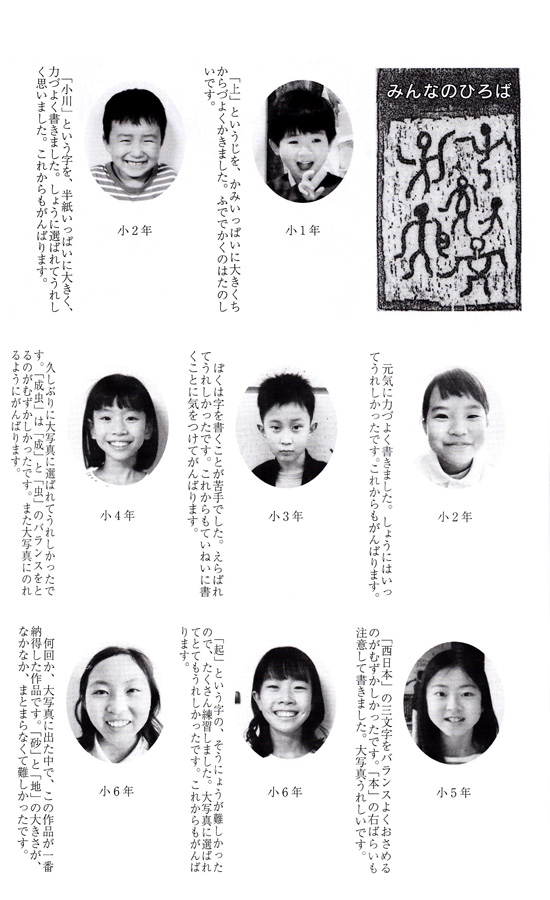 みんなのひろば
「上」というじを、かみいっぱいに大きくち
からづよくかきました。ふででかくのはたのし
いです。
小1年
「小川」という字を、半紙いっぱいに大きく、
力づよく書きました。しょうに選ばれてうれし
く思いました。これからもがんばります。
小2年
元気に力づよく書きました。しょうにはいっ
てうれしかったです。これからもがんばります。
小2年
ぼくは字を書くことが苦手でした。えらばれ
てうれしかったです。これからもていねいに書
くことに気をつけてがんばります。
小3年
久しぶりに大写真に選ばれてうれしかったで
す。「成虫」は「成」と「虫」のバランスをと
るのがむずかしかったです。また大写真にのれ
るようにがんばります。
小4年
「西日本」の三文字をバランスよくおさめる
のがむずかしかったです。「本」の右ばらいも
注意して書きました。大写真うれしいです。
小5年
「起」という字の、そうにょうが難しかった
ので、たくさん練習しました。大写真に選ばれ
てとてもうれしかったです。これからもがんば
ります。
小6年
何回か、大写真に出た中で、この作品が一番
納得した作品です。「砂」と「地」の大きさが、
なかなか、まとまらなくて難しかったです。
小6年